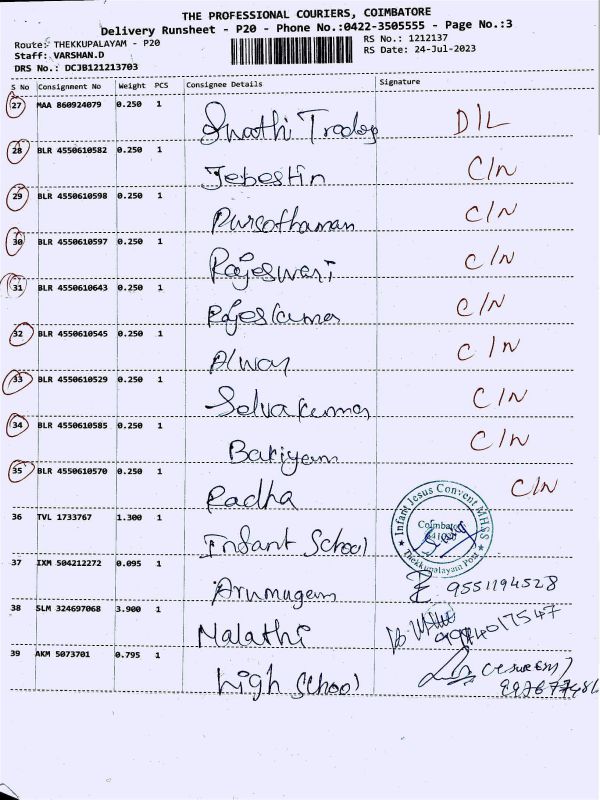 THE PROFESSIONAL COURIERS, COIMBATORE
Delivery Runsheet - P20 - Phone No.:0422-3505555 - Page No.:3
Route: THEKKUPALAYAM - P20
RS No.: 1212137
Staff: VARSHAN.D
RS Date: 24-Jul-2023
DRS No.: DCJB121213703
S No Consignment No Weight PCS Consignee Details Signature
27 MAA 860924079 0.250 1
Swathi D/L
28 BLR 4550610582 0.250 1
Jebestin C/N
29 BLR 4550610598 0.250 1
Pursothaman C/N
30 BLR 4550610597 0.250 1
Rajeswari C/N
31 BLR 4550610643 0.250 1
Rajeskumar C/N
32 BLR 4550610545 0.250 1
C/N
33 BLR 4550610529 0.250 1
Selvakumar C/N
34 BLR 4550610585 0.250 1
Bakiyam C/N
35 BLR 4550610570 0.250 1
Radha C/N
36 TVL 1733767 1.300 1
Infant School
Infant Jesus Convent MHSS
Coimbatore
Thekkupalayam Post
37 IXM 504212272 0.095 1
Arumugam 9551194528
38 SLM 324697068 3.900 1
Malathi
39 AKM 5073701 0.795 1
high School